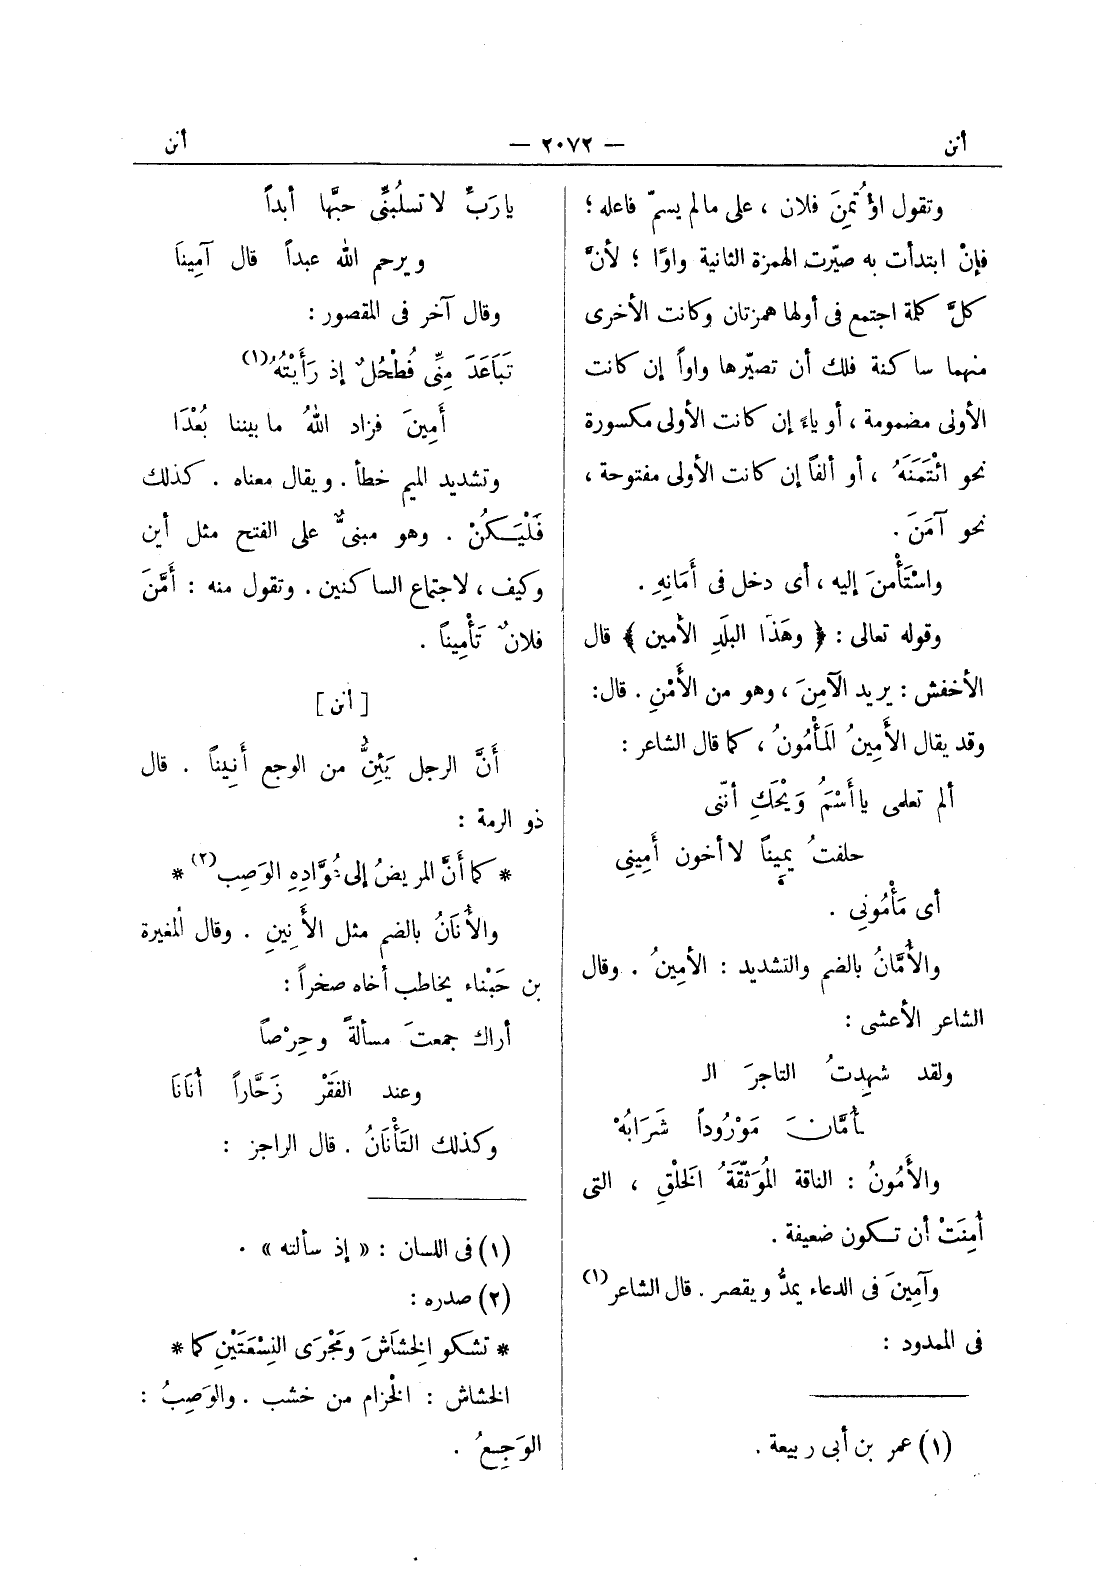 أنن — ٢٠٧٢ — أنن
وتقول اؤْتُمِنَ فلان ، على مالم يسمّ فاعله ؛
فإنْ ابتدأت به صيّرت الهمزة الثانية واوًا ؛ لأنَّ
كلَّ كلمة اجتمع فى أولها همزتان وكانت الأخرى
منهما ساكنة فلك أن تصيّرها واواً إن كانت
الأولى مضمومة ، أو ياءً إن كانت الأولى مكسورة
نحو ائْتَمَنَهُ ، أو ألفاً إن كانت الأولى مفتوحة ،
نحو آمَنَ .
واسْتَأْمنَ إليه ، أى دخل فى أَمَانِهِ .
وقوله تعالى : ﴿ وهَذَا البلَدِ الأمين ﴾ قال
الأخفش : يريد الآمِنَ ، وهو من الأَمْنِ . قال:
وقد يقال الأَمِينُ المَأْمُونُ ، كما قال الشاعر :
ألم تعلمى ياأَسْمَُ وَيْحَكِ أنّنى
حلفتُ يمِيناً لاأخون أَمِينِى
أى مَأْمُونِى .
والأُمَّانُ بالضم والتشديد : الأمينُ . وقال
الشاعر الأعشى :
ولقد شهِدتُ التاجرَ الـ
ـأُمَّانَ مَوْرُوداً شَرَابُهْ
والأَمُونُ : الناقة المُوَثّقَةُ الخَلْقِ ، التى
أُمِنَتْ أن تكون ضعيفة .
وآمِينَ فى الدعاء يمدُّ ويقصر . قال الشاعر(١)
فى الممدود :
(١) عمر بن أبى ربيعة .
يارَبِّ لاتسلُبَنِّى حبَّها أبداً
ويرحم الله عبداً قال آمِينَا
وقال آخر فى المقصور :
تَبَاعَدَ مِنِّى فُطْحُلٌ إذ رَأَيْتُهُ(١)
أَمِينَ فزاد اللهُ مابيننا بُعْدَا
وتشديد الميم خطأ . ويقال معناه . كذلك
فَلْيَكُنْ . وهو مبنىٌّ على الفتح مثل أين
وكيف ، لاجتماع الساكنين . وتقول منه : أَمَّنَ
فلانٌ تَأْمِيناً .
[ أنن ]
أَنَّ الرجل يَئِنُّ من الوجع أَنِيناً . قال
ذو الرمة :
* كما أَنَّ المريضُ إلى عُوَّادِهِ الوَصِب(٢) *
والأُنَانُ بالضم مثل الأَنِينِ . وقال المُغيرة
بن حَبْناء يخاطب أخاه صخراً :
أراك جمعتَ مسألةً وحِرْصاً
وعند الفَقْرِ زَحَّاراً أُنَانَا
وكذلك التَأْنَانُ . قال الراجز :
(١) فى اللسان : « إذ سألته » .
(٢) صدره :
* تشكو الخِشَاشَ ومَجْرَى النِسْعَتَيْنِ كما *
الخشاش : الخْزام من خشب . والوَصِبُ :
الوَجِيعُ .